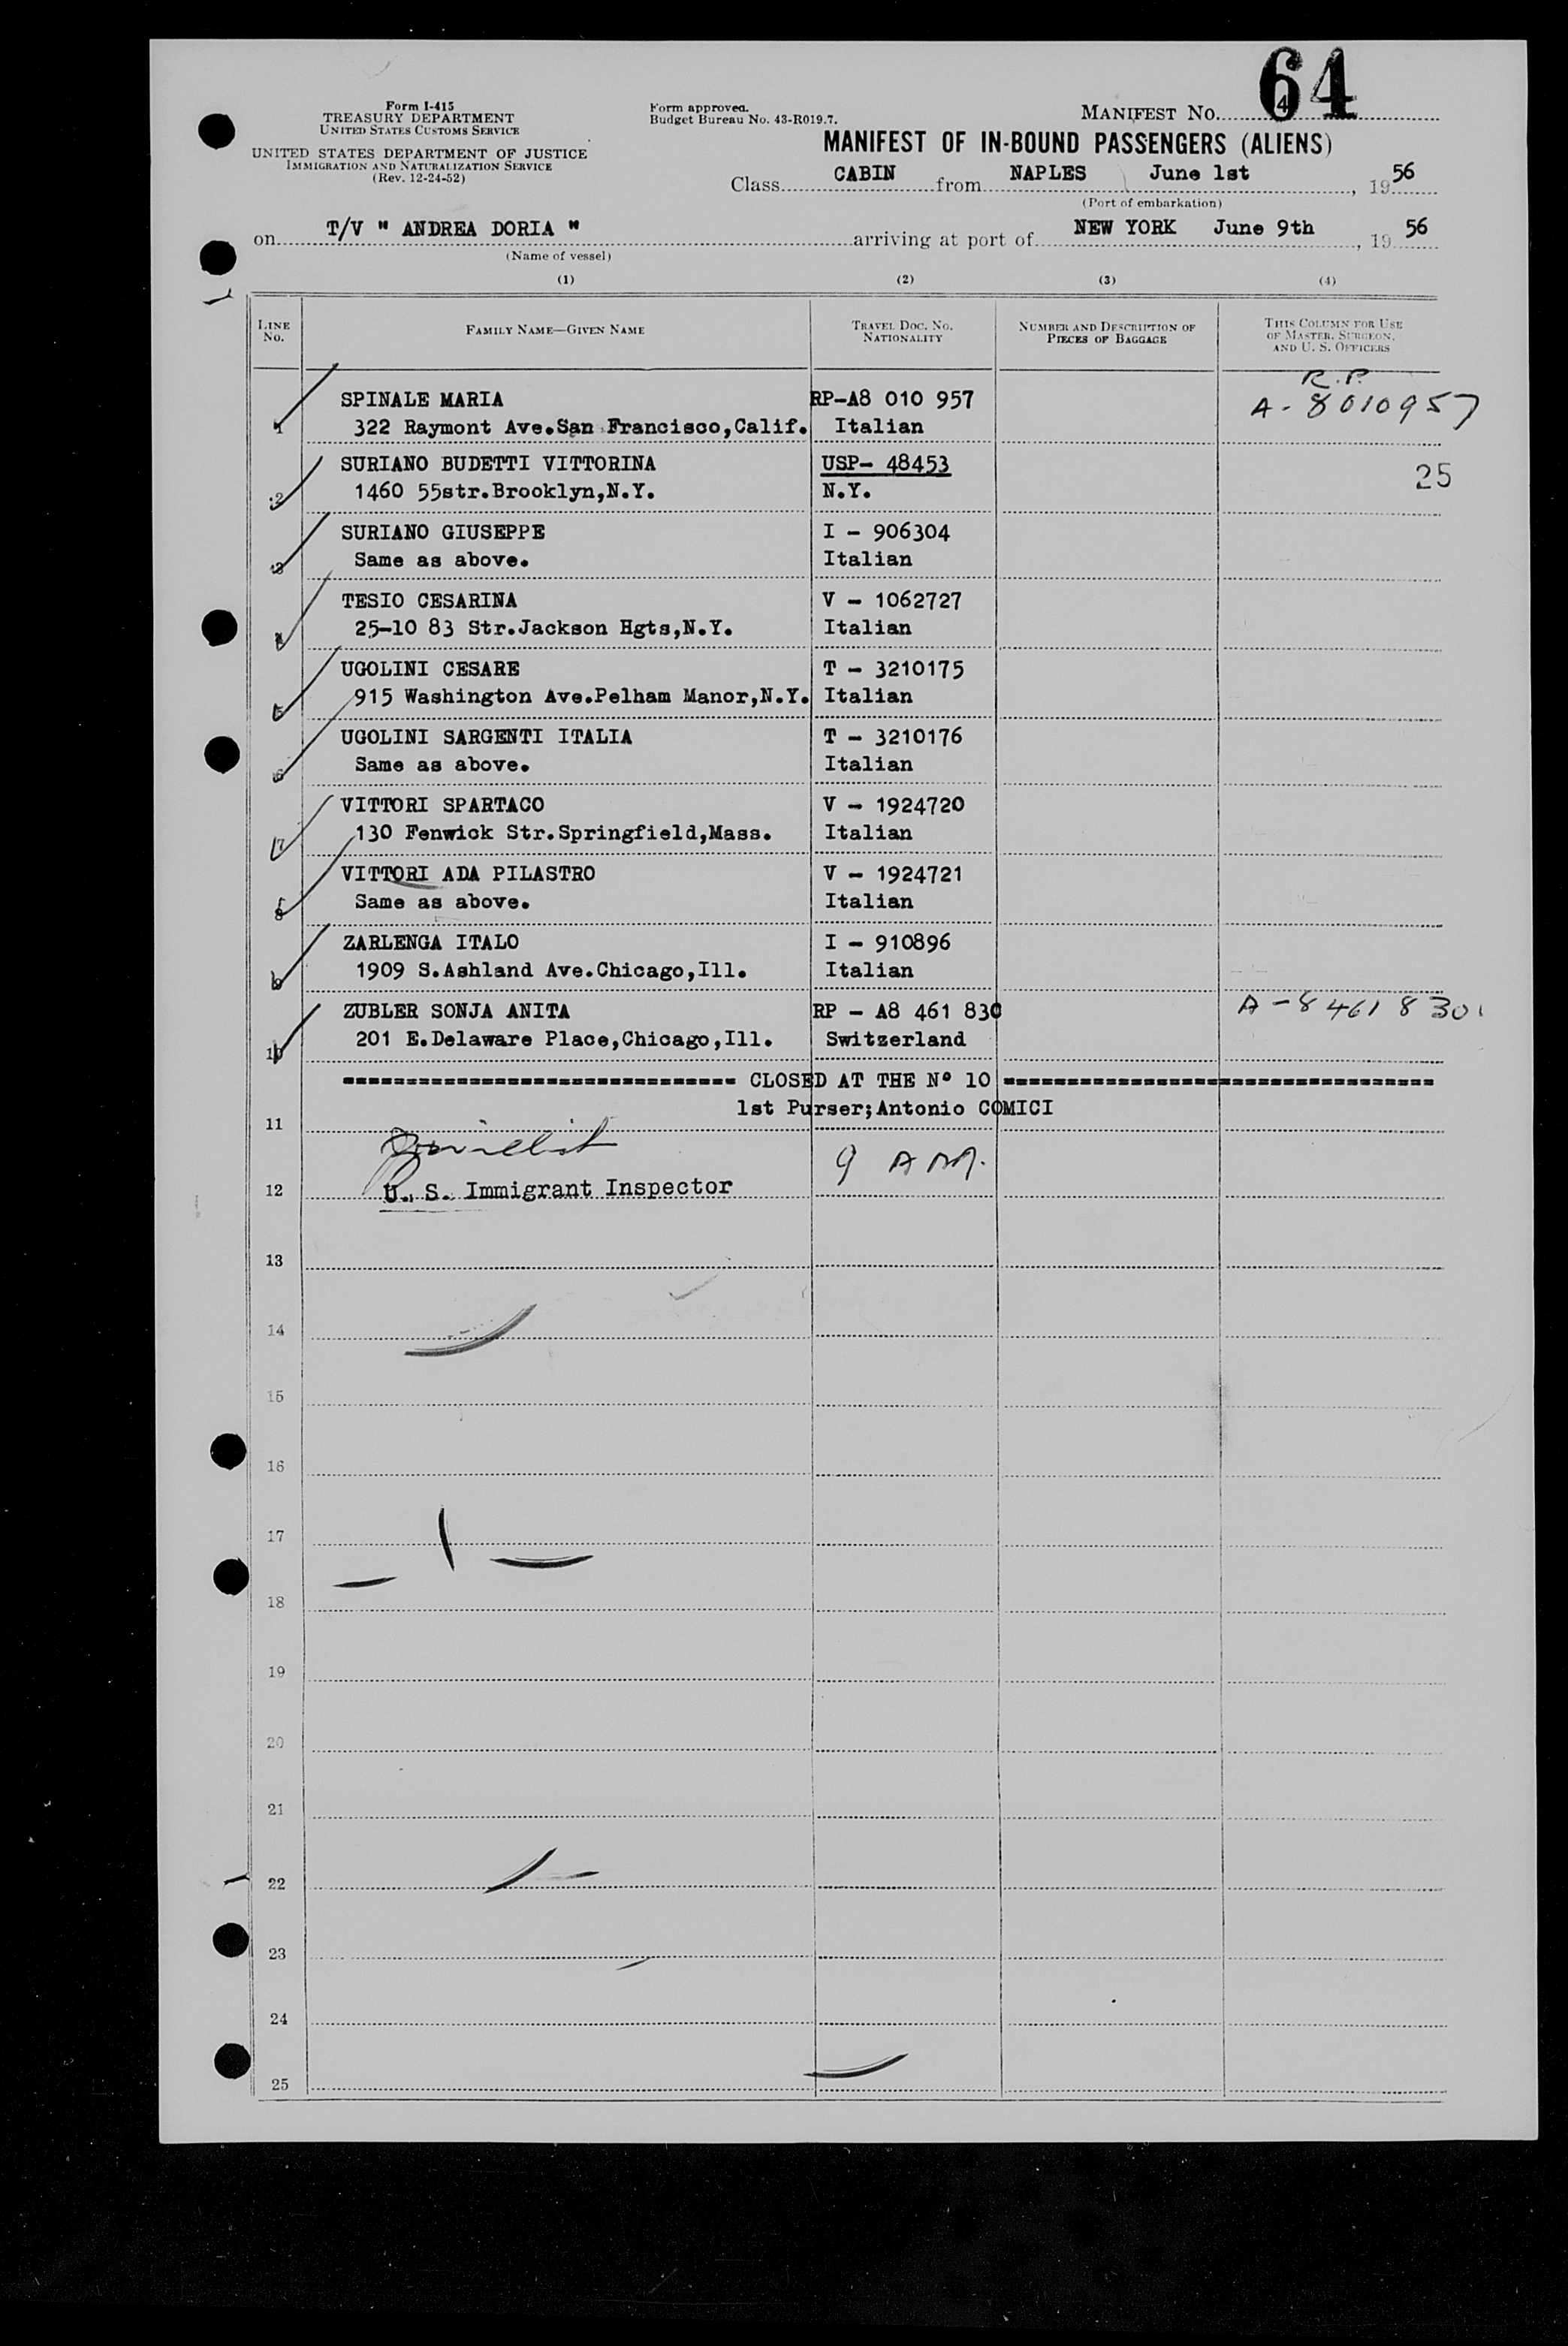 64
Form I-415
TREASURY DEPARTMENT
UNITED STATES CUSTOMS SERVICE
UNITED STATES DEPARTMENT OF JUSTICE
IMMIGRATION AND NATURALIZATION SERVICE
(Rev. 12-24-52)
Form approved.
Budget Bureau No. 43-R019.7.
MANIFEST No. 4
MANIFEST OF IN-BOUND PASSENGERS (ALIENS)
Class CABIN from NAPLES June 1st, 1956
(Port of embarkation)
on T/V " ANDREA DORIA " arriving at port of NEW YORK June 9th, 1956
(Name of vessel)
(1) (2) (3) (4)
LINE No. FAMILY NAME—GIVEN NAME TRAVEL DOC. NO. NATIONALITY NUMBER AND DESCRIPTION OF PIECES OF BAGGAGE THIS COLUMN FOR USE OF MASTER, SURGEON, AND U. S. OFFICERS
R.P.
SPINALE MARIA RP-A8 010 957 A-8010957
1 322 Raymont Ave.San Francisco,Calif. Italian
SURIANO BUDETTI VITTORINA USP- 48453 25
2 1460 55str.Brooklyn,N.Y. N.Y.
SURIANO GIUSEPPE I - 906304
3 Same as above. Italian
TESIO CESARINA V - 1062727
4 25-10 83 Str.Jackson Hgts,N.Y. Italian
UGOLINI CESARE T - 3210175
5 915 Washington Ave.Pelham Manor,N.Y. Italian
UGOLINI SARGENTI ITALIA T - 3210176
6 Same as above. Italian
VITTORI SPARTACO V - 1924720
7 130 Fenwick Str.Springfield,Mass. Italian
VITTORI ADA PILASTRO V - 1924721
8 Same as above. Italian
ZARLENGA ITALO I - 910896
9 1909 S.Ashland Ave.Chicago,Ill. Italian
ZUBLER SONJA ANITA RP - A8 461 830 A-8461830
10 201 E.Delaware Place,Chicago,Ill. Switzerland
=============================== CLOSED AT THE Nº 10 ==================================
1st Purser;Antonio COMICI
11
9 AM.
12 U. S. Immigrant Inspector
13
14
15
16
17
18
19
20
21
22
23
24
25